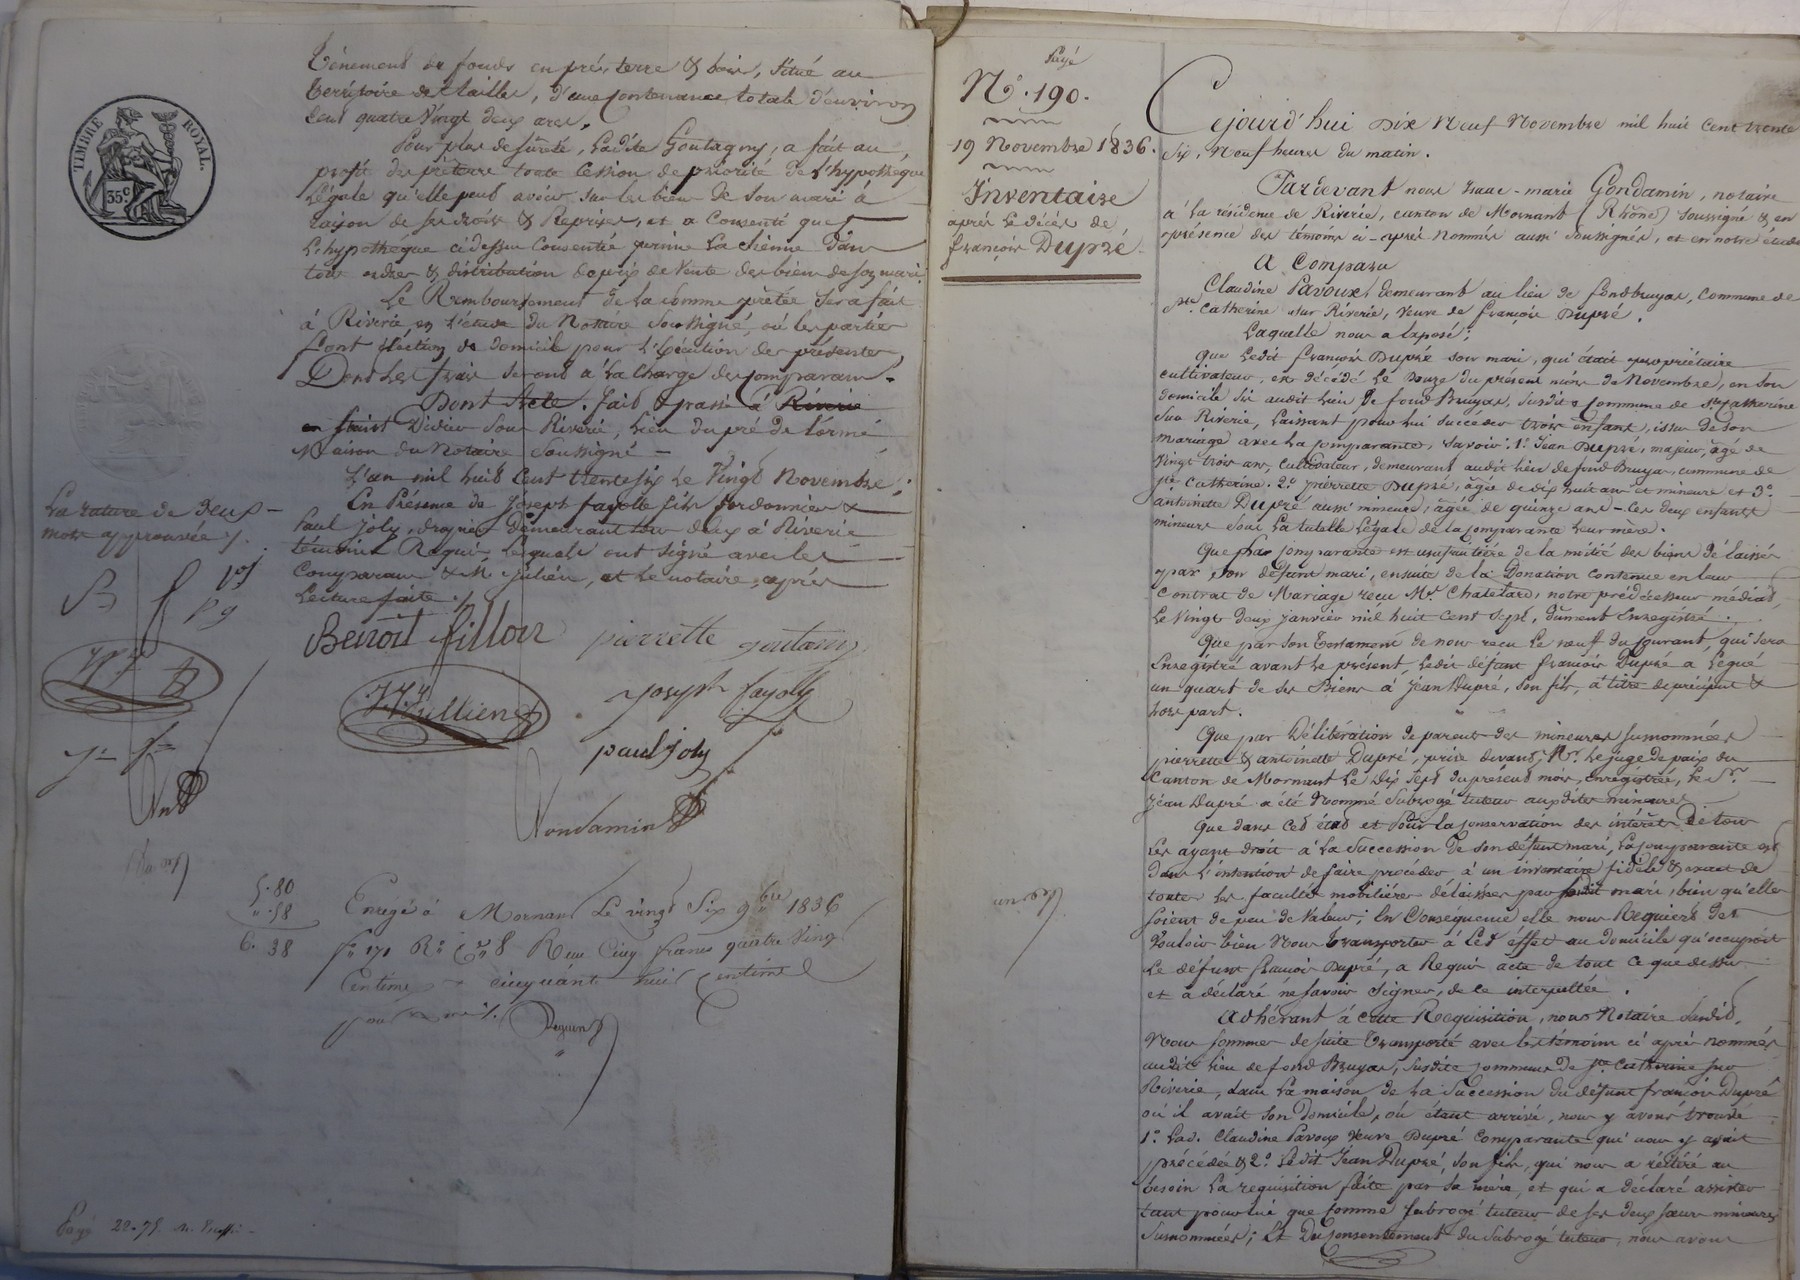 TIMBRE ROYAL.
35 c
Tènement de fonds en prés, terre & bois, situé au
territoire de Taillis, d'une contenance totale d'environ
cent quatre vingt deux ares.
Pour plus de sûreté, ladite Goutagny, a fait au
profit du prêteur toute cession de priorité de l'hypothèque
légale qu'elle peut avoir sur les biens de son mari à
raison de ses droits & Reprises, et a consenti que
l'hypothèque ci dessus consentie prime la sienne dans
tous ordres & distribution du prix de vente des biens de son mari.
Le Remboursement de la somme prêtée sera fait
à Riverie en l'étude du Notaire soussigné, où les parties
font élection de domicile pour l'exécution des présentes,
Dont les frais seront à la charge des comparans.
Dont Acte. fait & passé à Riverie
en Saint Didier sous Riverie, lieu du pré de l'orme
Maison du Notaire soussigné —
L'an mil huit cent trente six le vingt Novembre ;
En Présence de Joseph fayolle fils cordonnier &
Paul Joly, demeurant tous deux à Riverie
témoins Requis, lesquels ont signé avec les
Comparans & M. Jullien, et le notaire, après
Lecture faite ./.
La rature de deux
mots approuvée ./.
Benoît fillon pierrette goutagny
Jullien Joseph fayolle
paul joly
Gondamin
5. 80
" . 58
6. 38
Enregé à Mornant le vingt six 9bre 1836
fo 171 Ro C 8 Reçu Cinq francs quatre vingt
Centimes cinquante huit centimes
Payé 22-75
Payé
No. 190.
19 Novembre 1836.
Inventaire
après le décès de
françois Dupré.
Cejourd'hui Dix Neuf Novembre mil huit cent trente
six, Neuf heures du matin.
Pardevant nous Isaac-marie Gondamin, notaire
à la résidence de Riverie, canton de Mornant (Rhône) soussigné & en
présence des témoins ci-après nommés aussi soussignés, et en notre étude
A Comparu
Claudine Pavoux, demeurant au lieu de fondbruyas, commune de
Ste Catherine sur Riverie, veuve de françois Dupré.
Laquelle nous a exposé ;
Que ledit françois Dupré son mari, qui était propriétaire
cultivateur, est décédé le Douze du présent mois de Novembre, en son
domicile sis audit lieu de fond Bruyas, susdite commune de Ste Catherine
sur Riverie, laissant pour lui succéder trois enfans, issus de son
mariage avec la comparante, savoir : 1o. Jean Dupré, majeur, âgé de
Vingt trois ans, cultivateur, demeurant audit lieu de fond Bruyas, commune de
Ste Catherine. 2o. pierrette Dupré, âgée de dix huit ans et mineure et 3o.
antoinette Dupré aussi mineure, âgée de quinze ans — les deux enfants
mineurs sous la tutelle légale de la comparante leur mère.
Que la comparante est usufruitière de la moitié des biens délaissés
par son défunt mari, ensuite de la Donation contenue en leur
Contrat de Mariage reçu Me. Chatelard, notre prédécesseur médiat,
le Vingt Deux Janvier mil huit cent sept, dûment Enregistré.
Que par son testament de nous reçu le neuf du courant, qui sera
Enregistré avant le présent, ledit défunt françois Dupré a légué
un quart de ses Biens à Jean Dupré, son fils, à titre de préciput &
hors part.
Que par Délibération de parens des mineures susnommées
pierrette & antoinette Dupré, prise devant Mr. le juge de paix du
Canton de Mornant le Dix sept du présent mois, enregistrée, le Sr.
Jean Dupré a été Nommé Subrogé tuteur auxdites mineures
Que dans cet état et pour la conservation des intérêts de tous
les ayant droit à la succession de son défunt mari, la comparante est
dans l'intention de faire procéder à un inventaire fidèle & exact de
toutes les facultés mobilières délaissées par sondit mari, bien qu'elles
soient de peu de valeur ; En Conséquence elle nous Requiert de
Vouloir bien Nous transporter à cet effet au domicile qu'occupait
le défunt françois Dupré, a Requis acte de tout ce que dessus
et a déclaré ne savoir signer, de ce interpellée.
Adhérant à cette Requisition, nous Notaire susdit,
Nous sommes de suite transporté avec les témoins ci après nommés
audit lieu de fond Bruyas, susdite commune de Ste Catherine sur
Riverie, dans la maison de la succession du défunt françois Dupré
où il avait son domicile, où étant arrivé, nous y avons trouvé
1o. Lad. Claudine Pavoux veuve Dupré comparante qui nous y avait
précédée & 2o. ledit Jean Dupré, son fils, qui nous a réitéré au
besoin la requisition faite par sa mère, et qui a déclaré assister
tant pour lui que comme subrogé tuteur de ses deux sœurs mineures
susnommées ; Et Du consentement du subrogé tuteur, nous avons